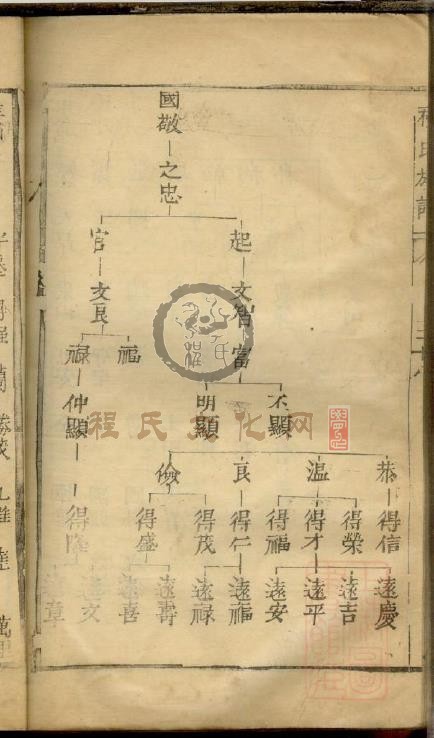 國敬
之忠
起
官
文智
文良
富
福
祿
丕顯
明顯
仲顯
恭
溫
良
儉
得信
得榮
得才
得福
得仁
得茂
得盛
得隆
遠慶
遠吉
遠平
遠安
遠福
遠祿
遠壽
遠喜
遠文
遠章
程氏文化网